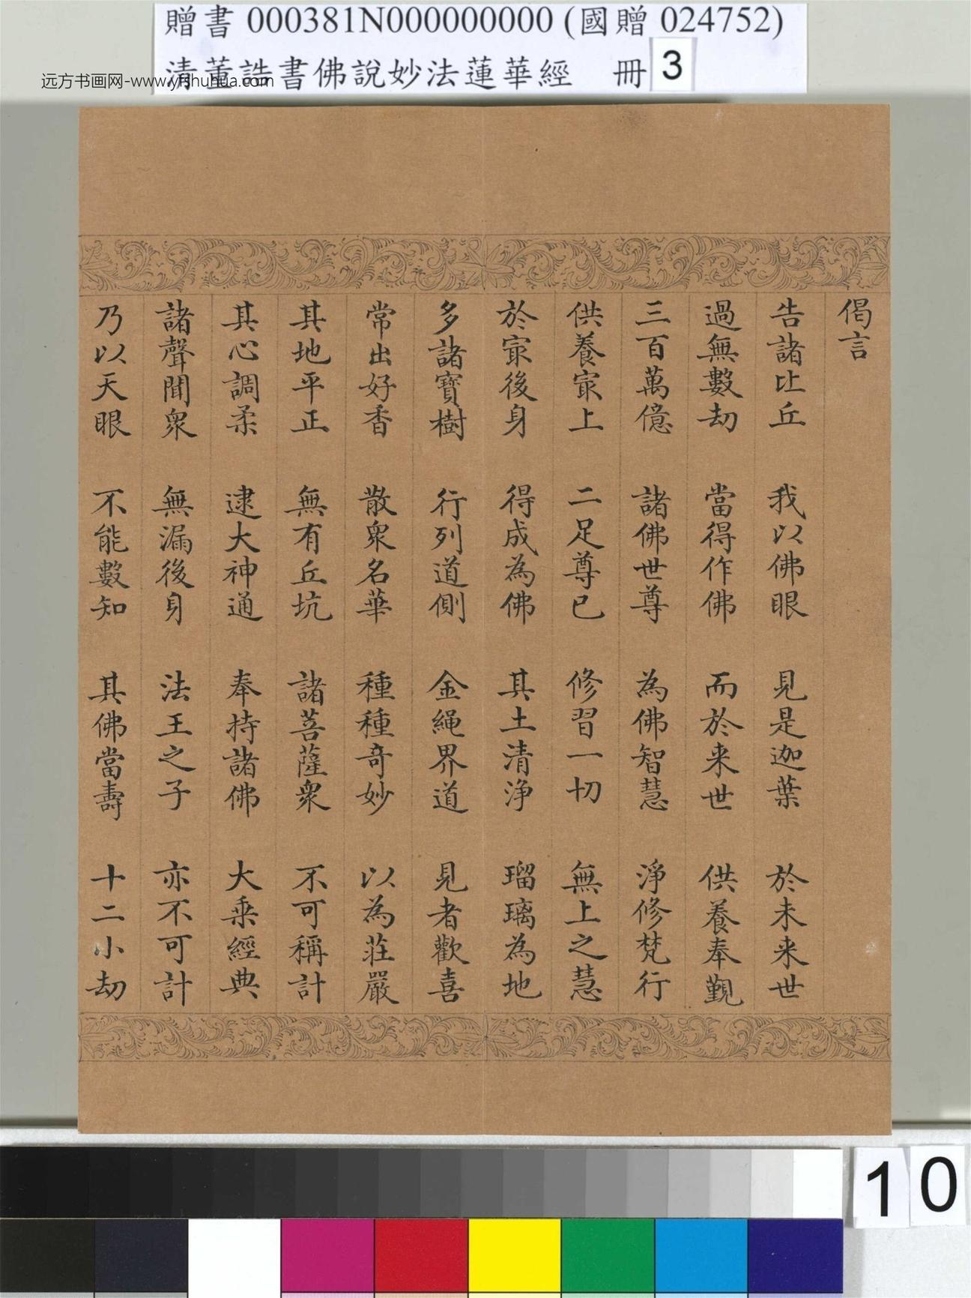 贈書 000381N000000000 (國贈 024752)
清董誥書佛說妙法蓮華經 冊 3
远方书画网-www.yfshuhua.com
偈言
告諸比丘 我以佛眼 見是迦葉 於未来世
過無數劫 當得作佛 而於来世 供養奉覲
三百萬億 諸佛世尊 為佛智慧 淨修梵行
供養冣上 二足尊已 修習一切 無上之慧
於冣後身 得成為佛 其土清淨 瑠璃為地
多諸寶樹 行列道側 金繩界道 見者歡喜
常出好香 散眾名華 種種奇妙 以為莊嚴
其地平正 無有丘坑 諸菩薩眾 不可稱計
其心調柔 逮大神通 奉持諸佛 大乘經典
諸聲聞眾 無漏後身 法王之子 亦不可計
乃以天眼 不能數知 其佛當壽 十二小劫
10